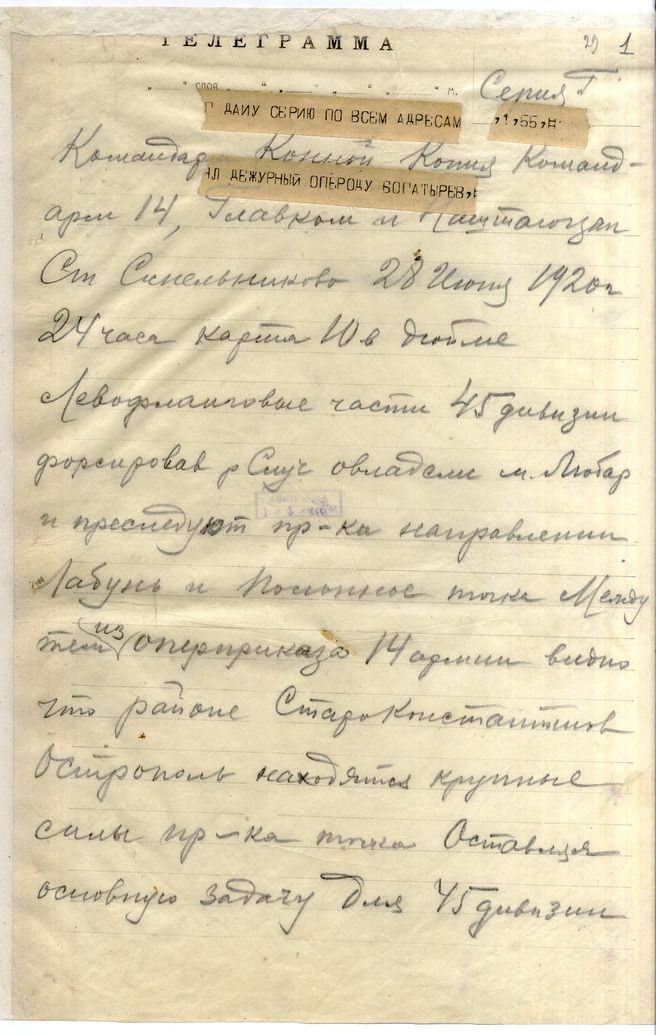 ТЕЛЕГРАММА
29 1
слов
Серия Г
ДАЙУ СЕРИЮ ПО ВСЕМ АДРЕСАМ ,1,55,
Командарм Конной Копия Команд-
АЛ ДЕЖУРНЫЙ ОПЕРОДУ БОГАТЫРЕВ,
арм 14, Главком и Наштаюгзап
Ст Синельниково 28 Июня 1920г
24 часа карта 10 в дюйме
Левофланговые части 45 дивизии
форсировав р Случ овладели м. Любар
и преследуют пр-ка направлении
Лабунь и Полонное точка Между
тем из оперприказа 14 армии видно
что районе Староконстантинов
Острополь находятся крупные
силы пр-ка точка Оставляя
основную задачу для 45 дивизии